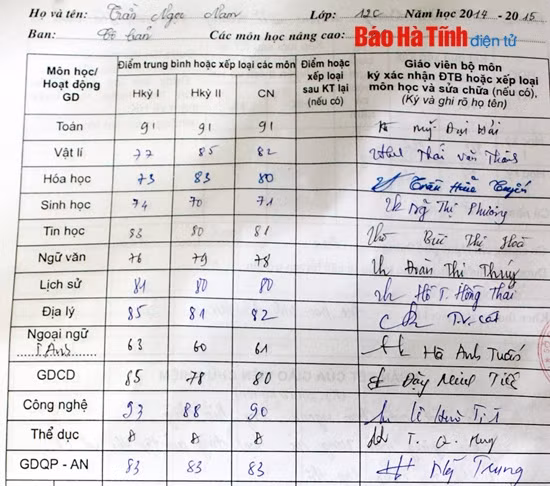 Họ và tên: Trần Ngọc Nam Lớp: 12C Năm học 2014 - 2015
Ban: Cơ bản Các môn học nâng cao: Báo Hà Tĩnh điện tử
Môn học/ Hoạt động GD Điểm trung bình hoặc xếp loại các môn Điểm hoặc xếp loại sau KT lại (nếu có) Giáo viên bộ môn ký xác nhận ĐTB hoặc xếp loại môn học và sửa chữa (nếu có). (Ký và ghi rõ họ tên)
Hkỳ I Hkỳ II CN
Toán 91 91 91
Vật lí 77 85 82 Thái Văn
Hóa học 73 83 80 Trần
Sinh học 74 70 71 Thị Phương
Tin học 83 80 81 Thị Hoà
Ngữ văn 76 79 78 Đoàn Thị Thúy
Lịch sử 81 80 80 Hồ T. Hồng Thái
Địa lý 85 81 82
Ngoại ngữ T Anh 63 60 61 Hà Anh Tuấn
GDCD 85 78 80 Đậy
Công nghệ 93 88 90
Thể dục Đ Đ Đ
GDQP - AN 83 83 83 Trung